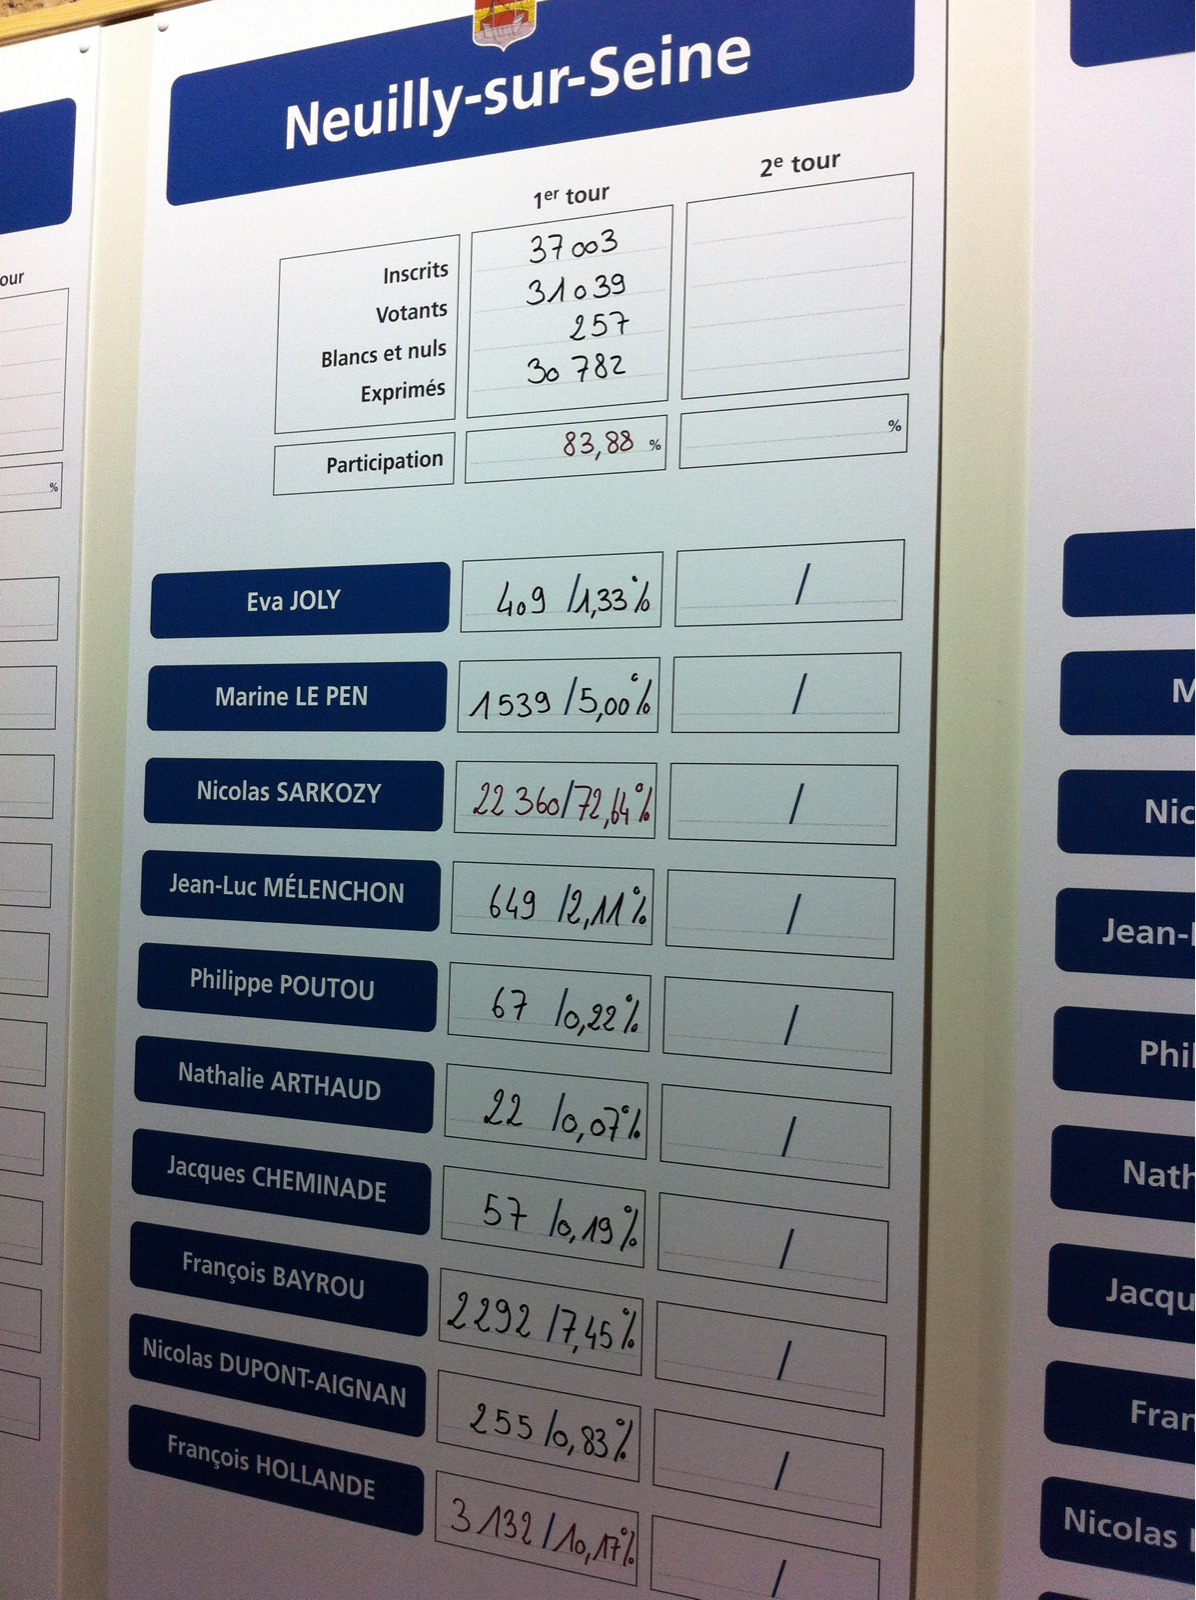 Neuilly-sur-Seine
1er tour 2e tour
our
Inscrits 37 003
Votants 31 039
Blancs et nuls 257
Exprimés 30 782
Participation 83,88 % %
%
Eva JOLY 409 /1,33% /
Marine LE PEN 1539 /5,00% / M
Nicolas SARKOZY 22 360/72,64% / Nic
Jean-Luc MÉLENCHON 649 /2,11% / Jean-
Philippe POUTOU 67 /0,22% / Phil
Nathalie ARTHAUD 22 /0,07% / Nath
Jacques CHEMINADE 57 /0,19% / Jacqu
François BAYROU 2292 /7,45% / Fran
Nicolas DUPONT-AIGNAN 255 /0,83% / Nicolas
François HOLLANDE 3 132 /10,17% /